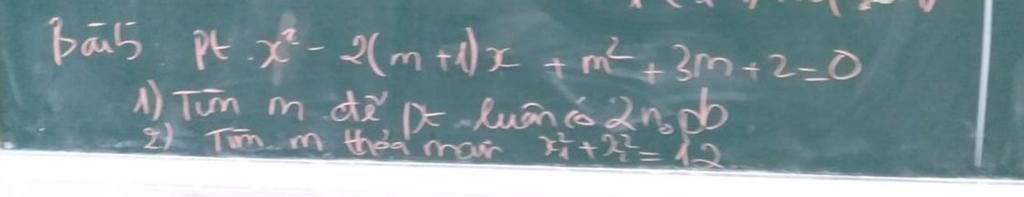 Bài 5 pt. x² - 2(m+1)x + m² + 3m + 2 = 0
1) Tìm m để pt luôn có 2 n₀ pb
2) Tìm m thỏa mãn x₁² + x₂² = 12